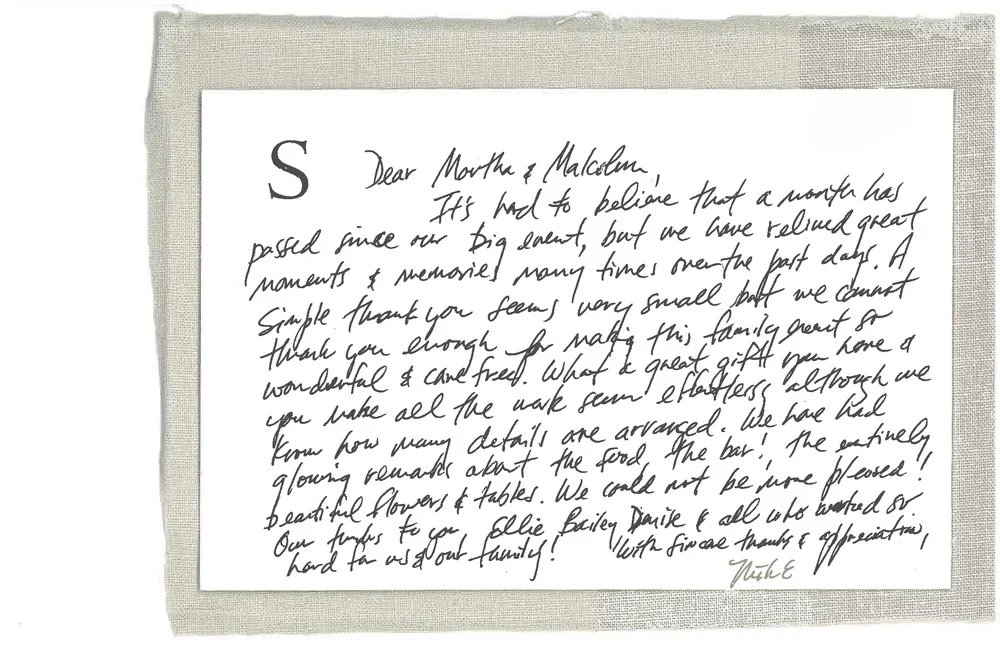 S
Dear Martha & Malcolm,
It's hard to believe that a month has
passed since our big event, but we have relived great
moments & memories many times over the past days. A
simple thank you seems very small but we cannot
thank you enough for making this family event so
wonderful & care free. What a great gift you have &
you make all the work seem effortless, although we
know how many details are arranged. We have had
glowing remarks about the food, the bar! the
beautiful flowers & tables. We could not be more pleased!
Our thanks to you, Ellie, Bailey, Denise & all who worked so
hard for us & our family! With sincere thanks & appreciation,